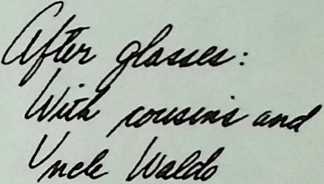 After glasses:
With cousins and
Uncle Waldo